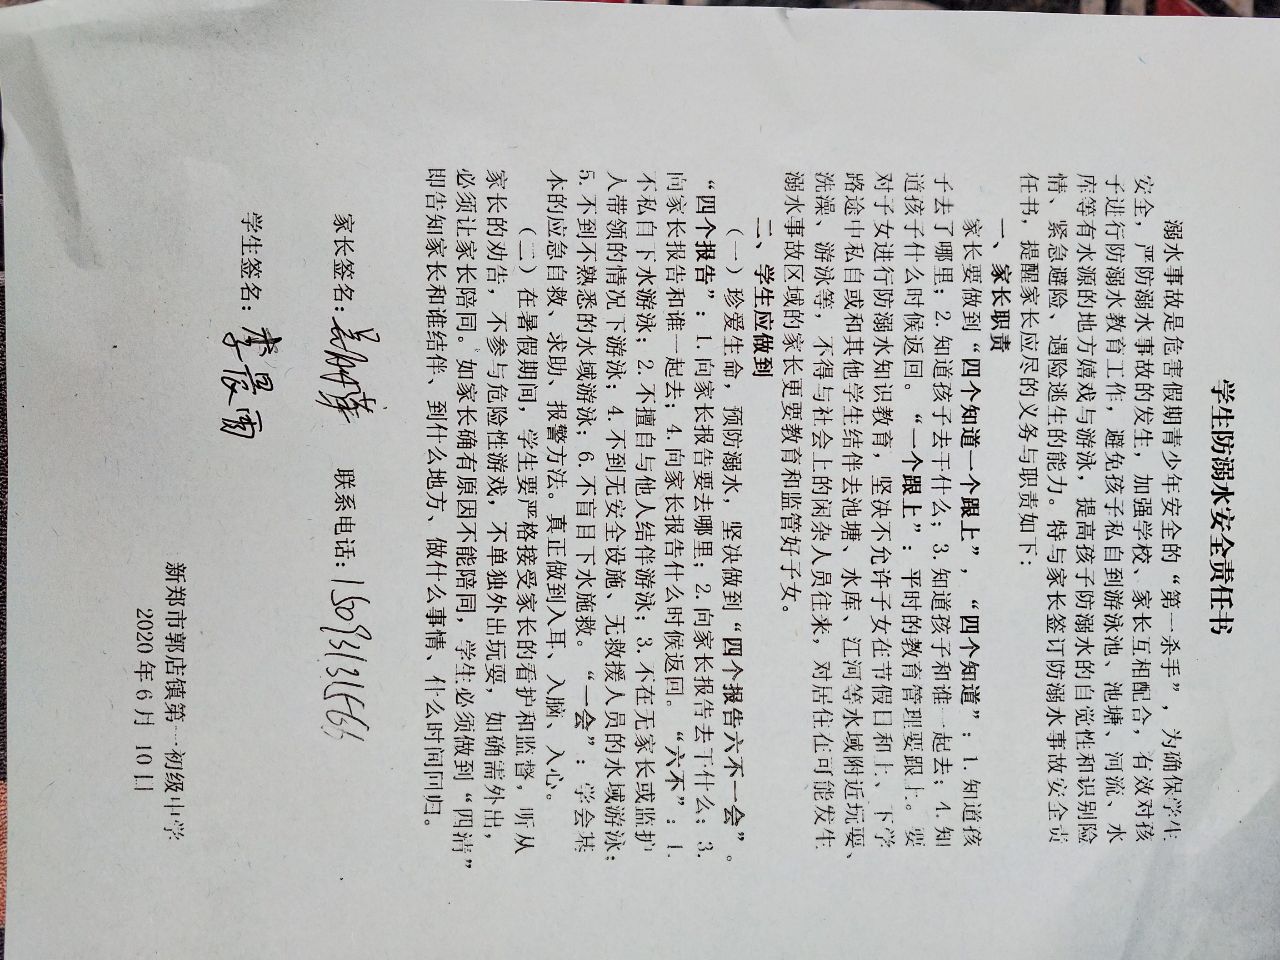 学生防溺水安全责任书
溺水事故是危害假期青少年安全的“第一杀手”，为确保学生
安全，严防溺水事故的发生，加强学校、家长互相配合，有效对孩
子进行防溺水教育工作，避免孩子私自到游泳池、池塘、河流、水
库等有水源的地方嬉戏与游泳，提高孩子防溺水的自觉性和识别险
情、紧急避险、遇险逃生的能力。特与家长签订防溺水事故安全责
任书，提醒家长应尽的义务与职责如下：
一、家长职责
家长要做到“四个知道一个跟上”，“四个知道”：1.知道孩
子去了哪里；2.知道孩子去干什么；3.知道孩子和谁一起去；4.知
道孩子什么时候返回。“一个跟上”：平时的教育管理要跟上。要
对子女进行防溺水知识教育，坚决不允许子女在节假日和上、下学
路途中私自或和其他学生结伴去池塘、水库、江河等水域附近玩耍、
洗澡、游泳等，不得与社会上的闲杂人员往来，对居住在可能发生
溺水事故区域的家长更要教育和监管好子女。
二、学生应做到
（一）珍爱生命，预防溺水，坚决做到“四个报告六不一会”。
“四个报告”：1.向家长报告要去哪里；2.向家长报告去干什么；3.
向家长报告和谁一起去；4.向家长报告什么时候返回。“六不”：1.
不私自下水游泳；2.不擅自与他人结伴游泳；3.不在无家长或监护
人带领的情况下游泳；4.不到无安全设施、无救援人员的水域游泳；
5.不到不熟悉的水域游泳；6.不盲目下水施救。“一会”：学会基
本的应急自救、求助、报警方法。真正做到入耳、入脑、入心。
（二）在暑假期间，学生要严格接受家长的看护和监督，听从
家长的劝告，不参与危险性游戏，不单独外出玩耍，如确需外出，
必须让家长陪同。如家长确有原因不能陪同，学生必须做到“四清”
即告知家长和谁结伴、到什么地方、做什么事情、什么时间回归。
家长签名： 联系电话：
学生签名：李晨雨
新郑市郭店镇第一初级中学
2020年6月 10日